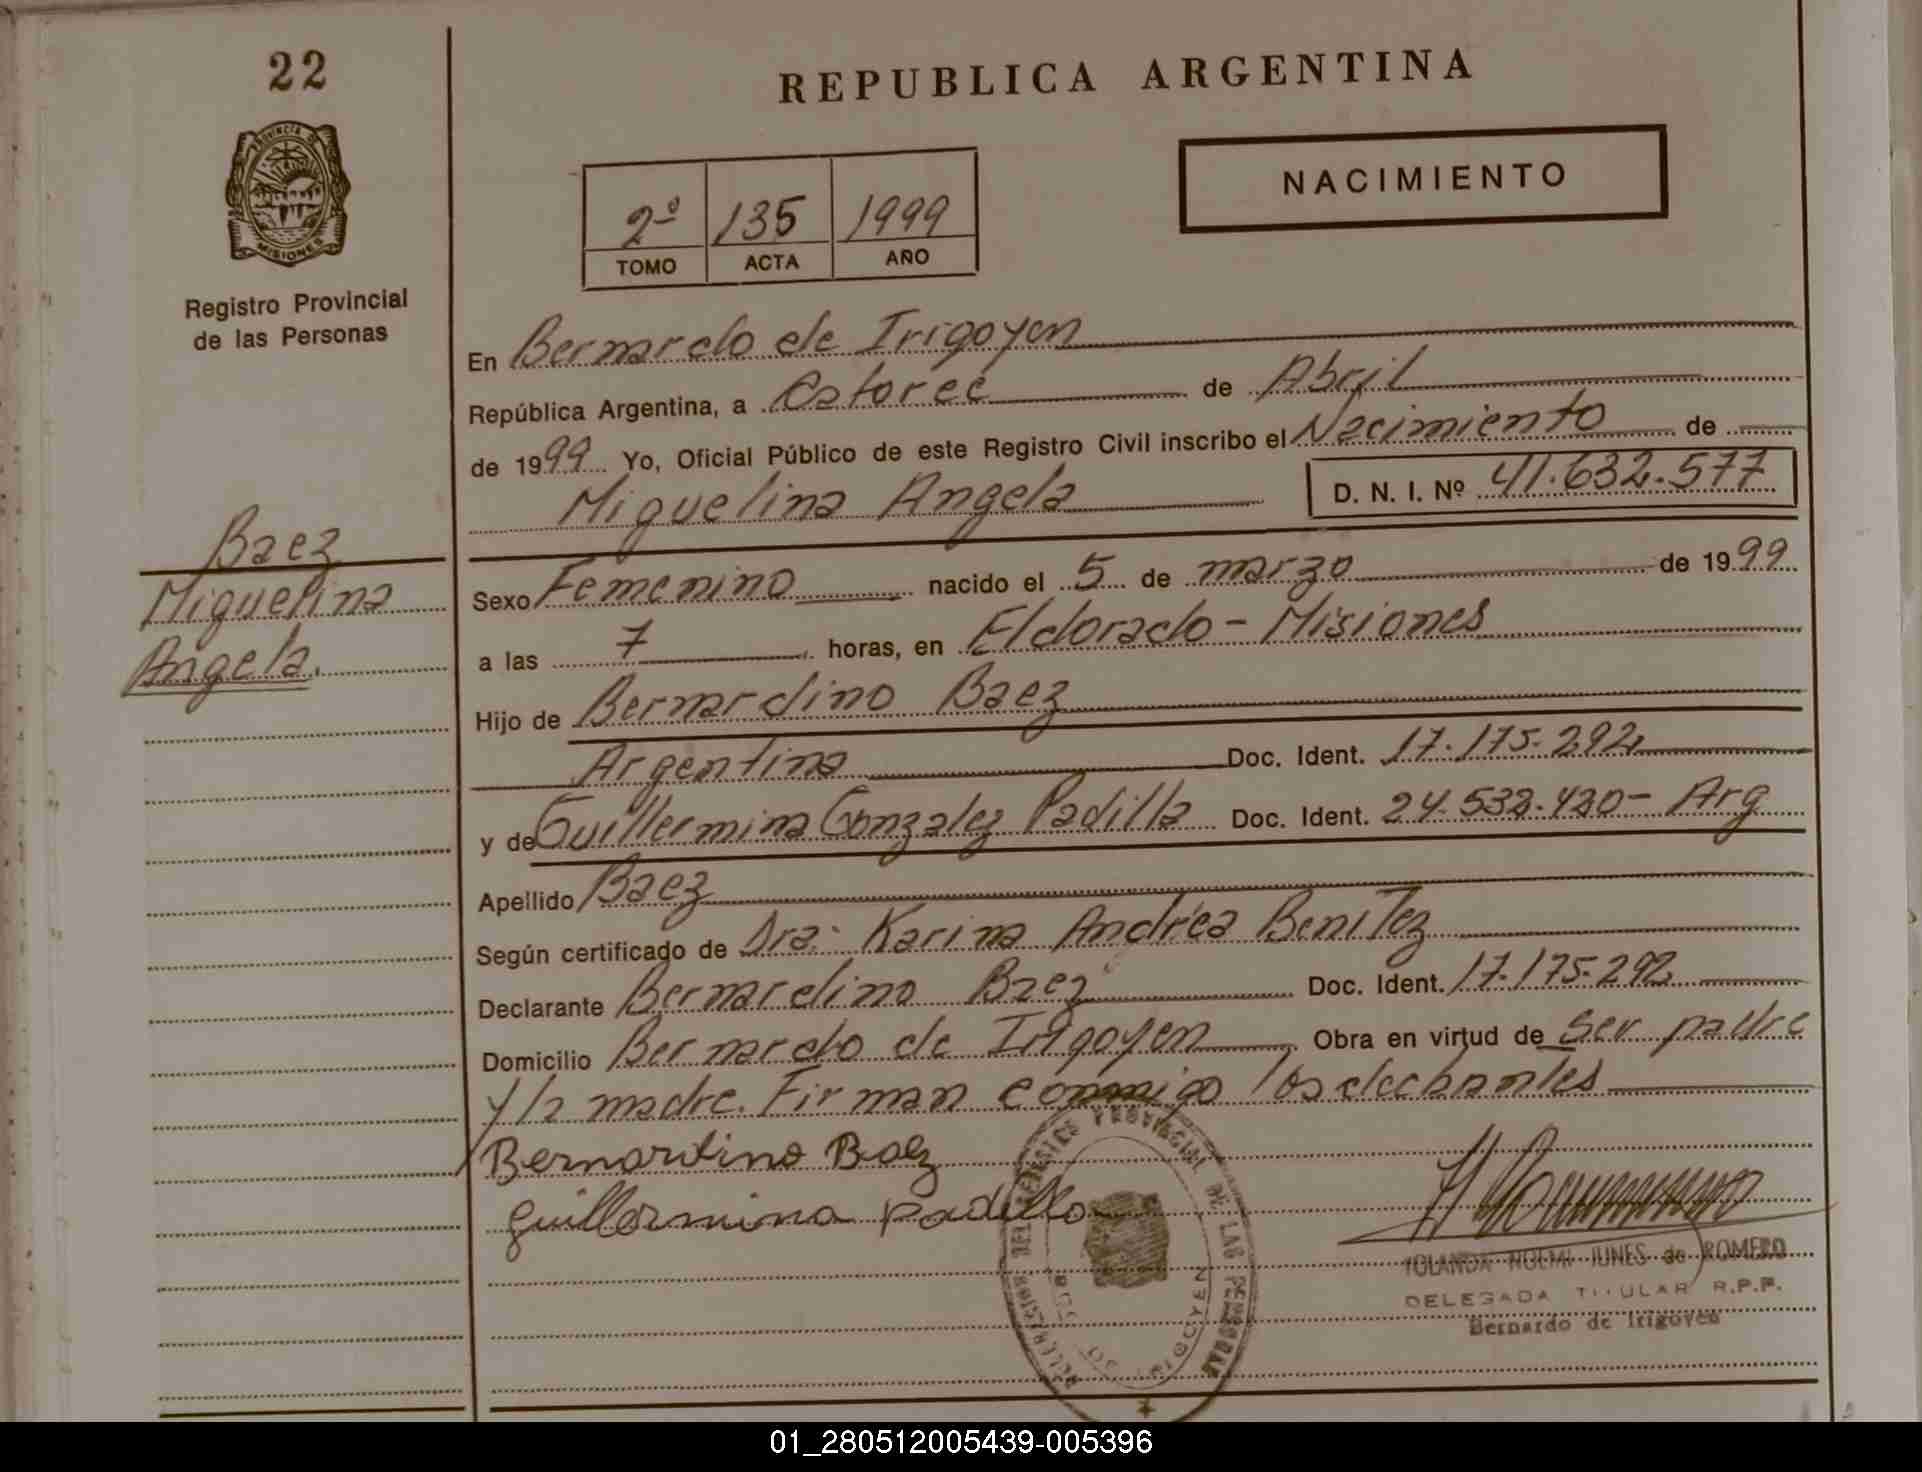 22
REPUBLICA ARGENTINA
PROVINCIA DE
MISIONES
NACIMIENTO
2º 135 1999
TOMO ACTA AÑO
Registro Provincial
de las Personas
En Bernardo de Irigoyen
República Argentina, a Catorce de Abril
de 1999 Yo, Oficial Público de este Registro Civil inscribo el Nacimiento de
Miguelina Angela D. N. I. Nº 41.632.577
Baez
Miguelina
Angela.
Sexo Femenino nacido el 5 de marzo de 1999
a las 7 horas, en Eldorado - Misiones
Hijo de Bernardino Baez
Argentina Doc. Ident. 17.175.292
y de Guillermina Gonzalez Padilla Doc. Ident. 24.532.420 - Arg
Apellido Baez
Según certificado de Dra. Karina Andrea Benítez
Declarante Bernardino Baez Doc. Ident. 17.175.292
Domicilio Bernardo de Irigoyen Obra en virtud de Ser padre
y la madre. Firman conmigo los declarantes
Bernardino Baez
guillermina padilla
PROVINCIAL DE LAS PERSONAS
IRIGOYEN
YOLANDA NOEMI JUNES de ROMERO
DELEGADA TITULAR R.P.P.
Bernardo de Irigoyen
01_280512005439-005396